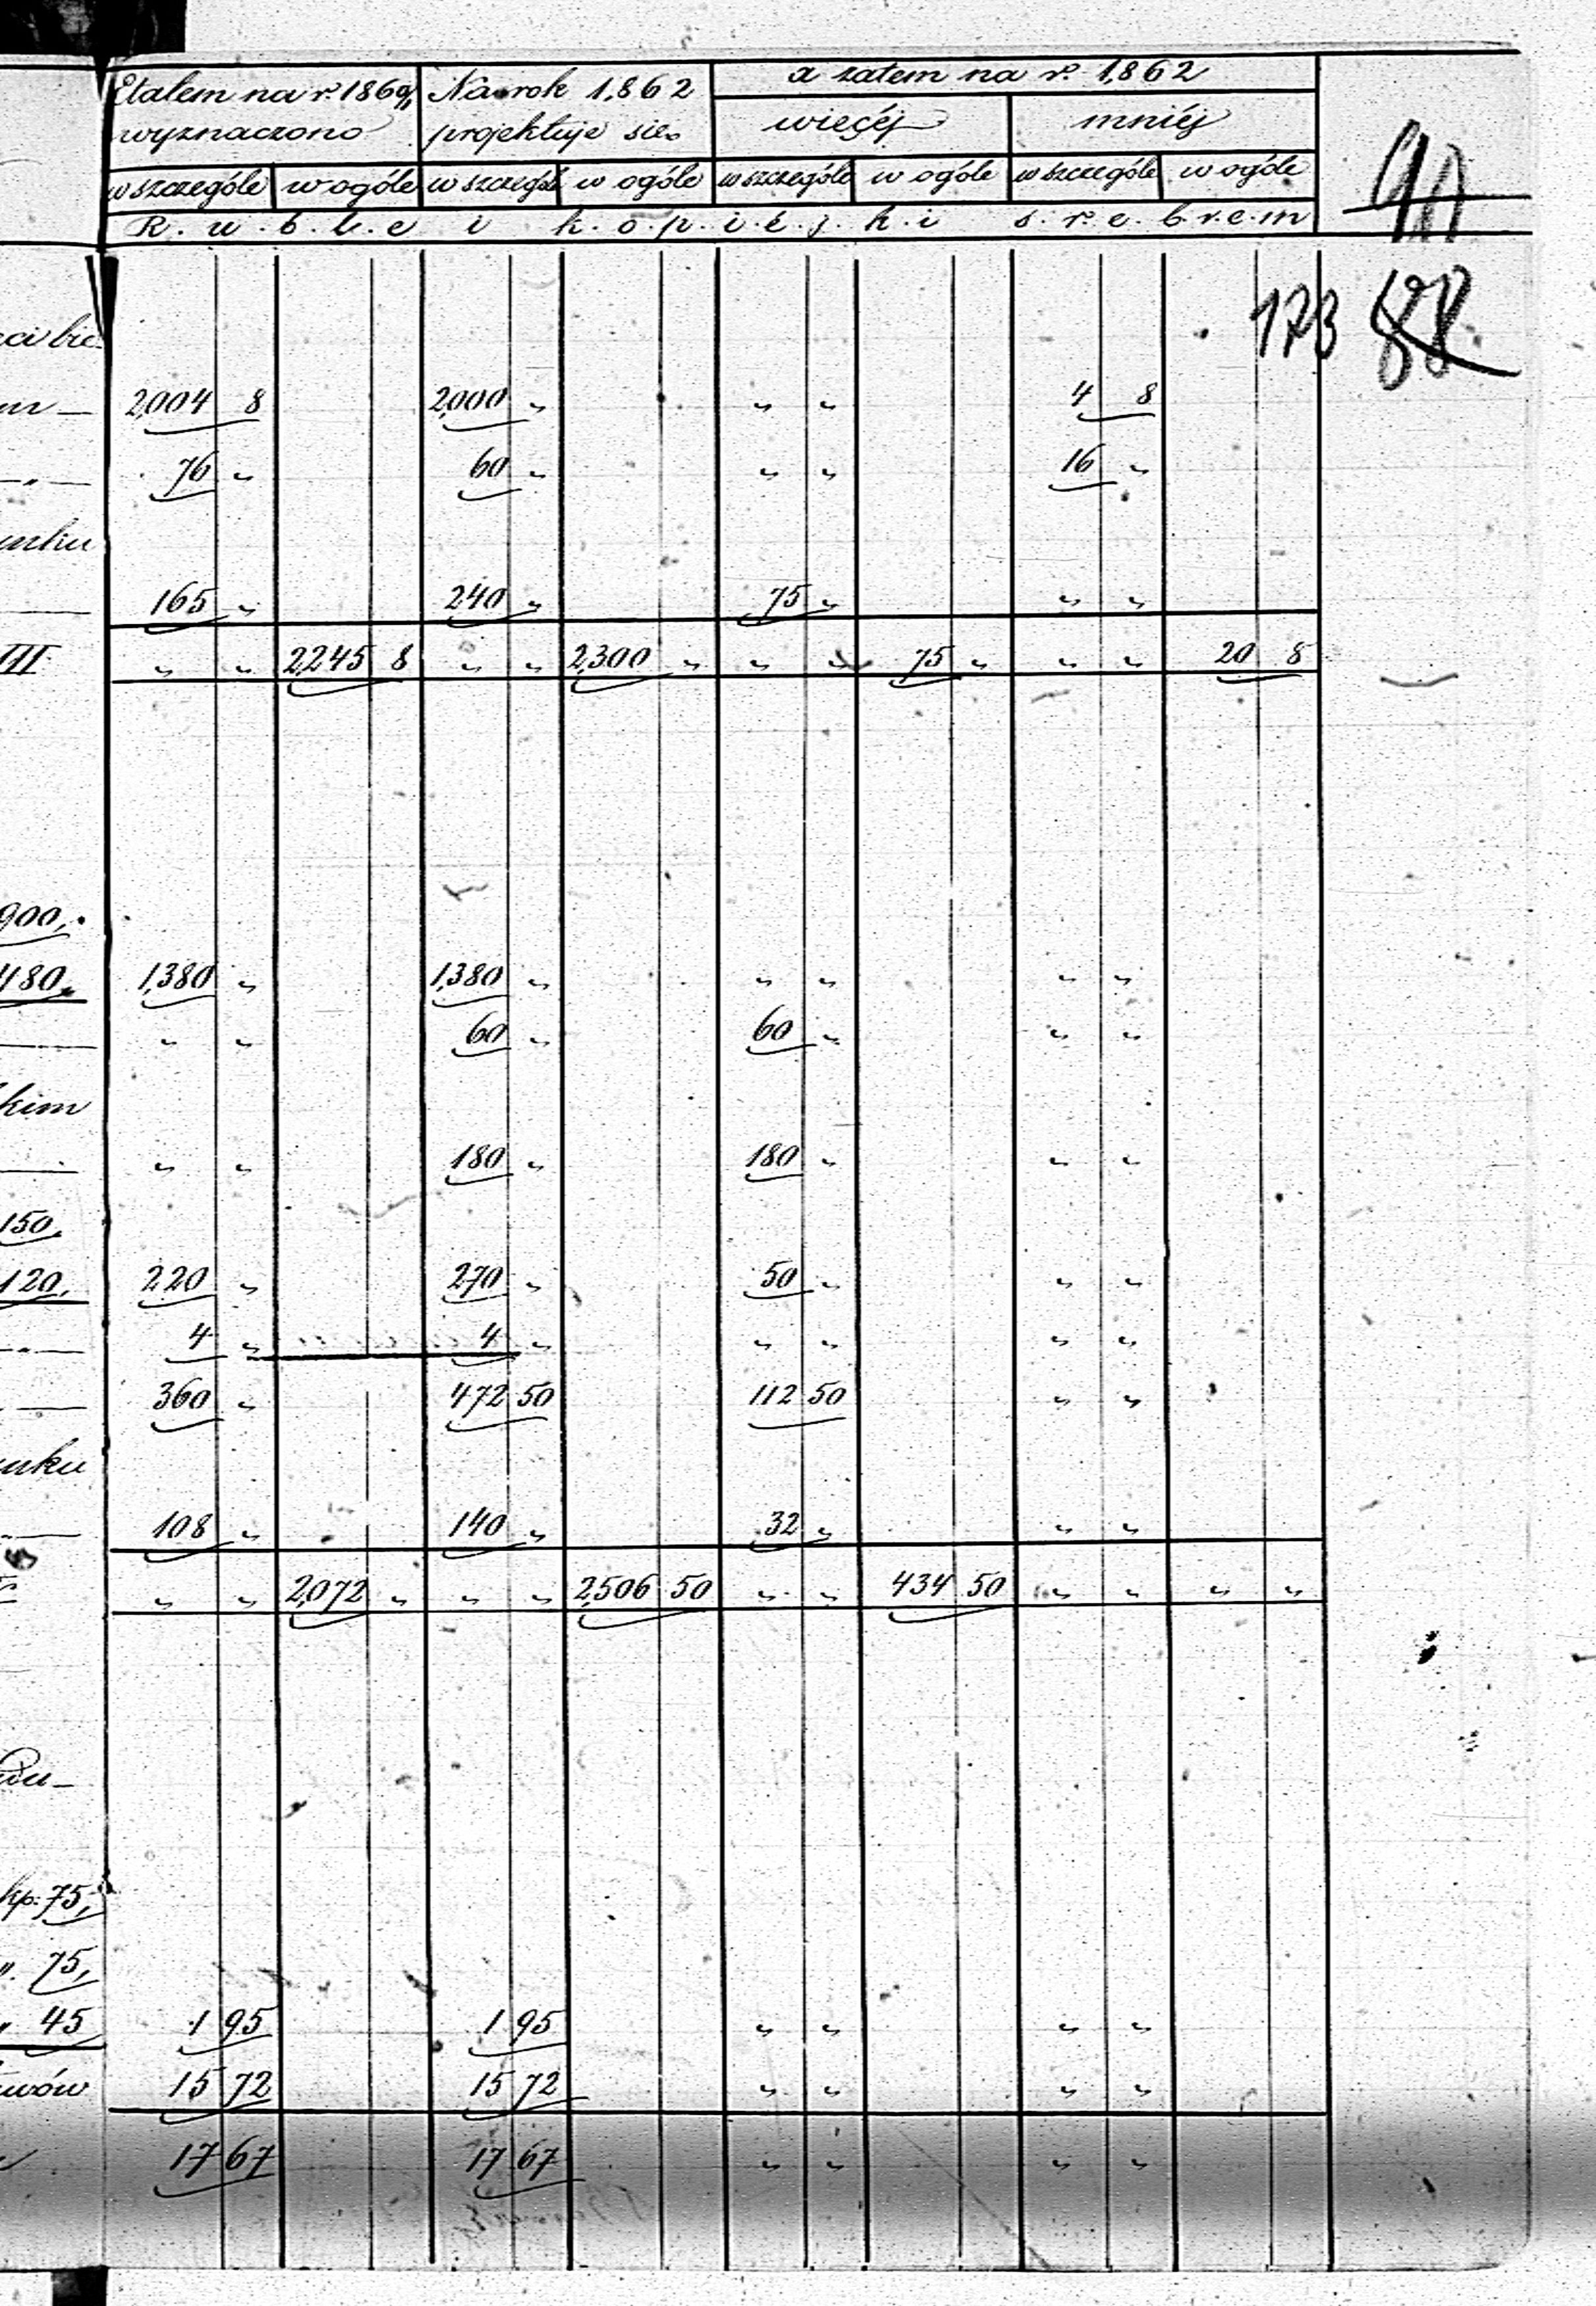 Etatem na r. 1860/1 Na rok 1,862 a zatem na r. 1,862
wyznaczono projektuje się więcéj mniéj
w szczególe w ogóle w szczególe w ogóle w szczególe w ogóle w szczególe w ogóle
R.u.b.l.e i k.o.p.i.e.j.k.i s.r.e.b.r.e.m
173 88
2,004 8 2,000 " " " 4 8
" 76 " 60 " " " 16 "
unku
165 " 240 " 75 " " "
III " " 2,245 8 " " 2,300 " " " 75 " " " 20 8
900,
480, 1,380 " 1,380 " " " " "
" " 60 " 60 " " "
kim
" " 180 " 180 " " "
150,
120, 220 " 270 " 50 " " "
" 4 " 4 " " " " "
360 " 472 50 112 50 " "
unku
108 " 140 " 32 " " "
" " 2,072 " " " 2,506 50 " " 434 50 " " " "
kp. 75,
". 75,
" 45 1 95 1 95 " " " "
wów 15 72 15 72 " " " "
17 67 17 67 " " " "